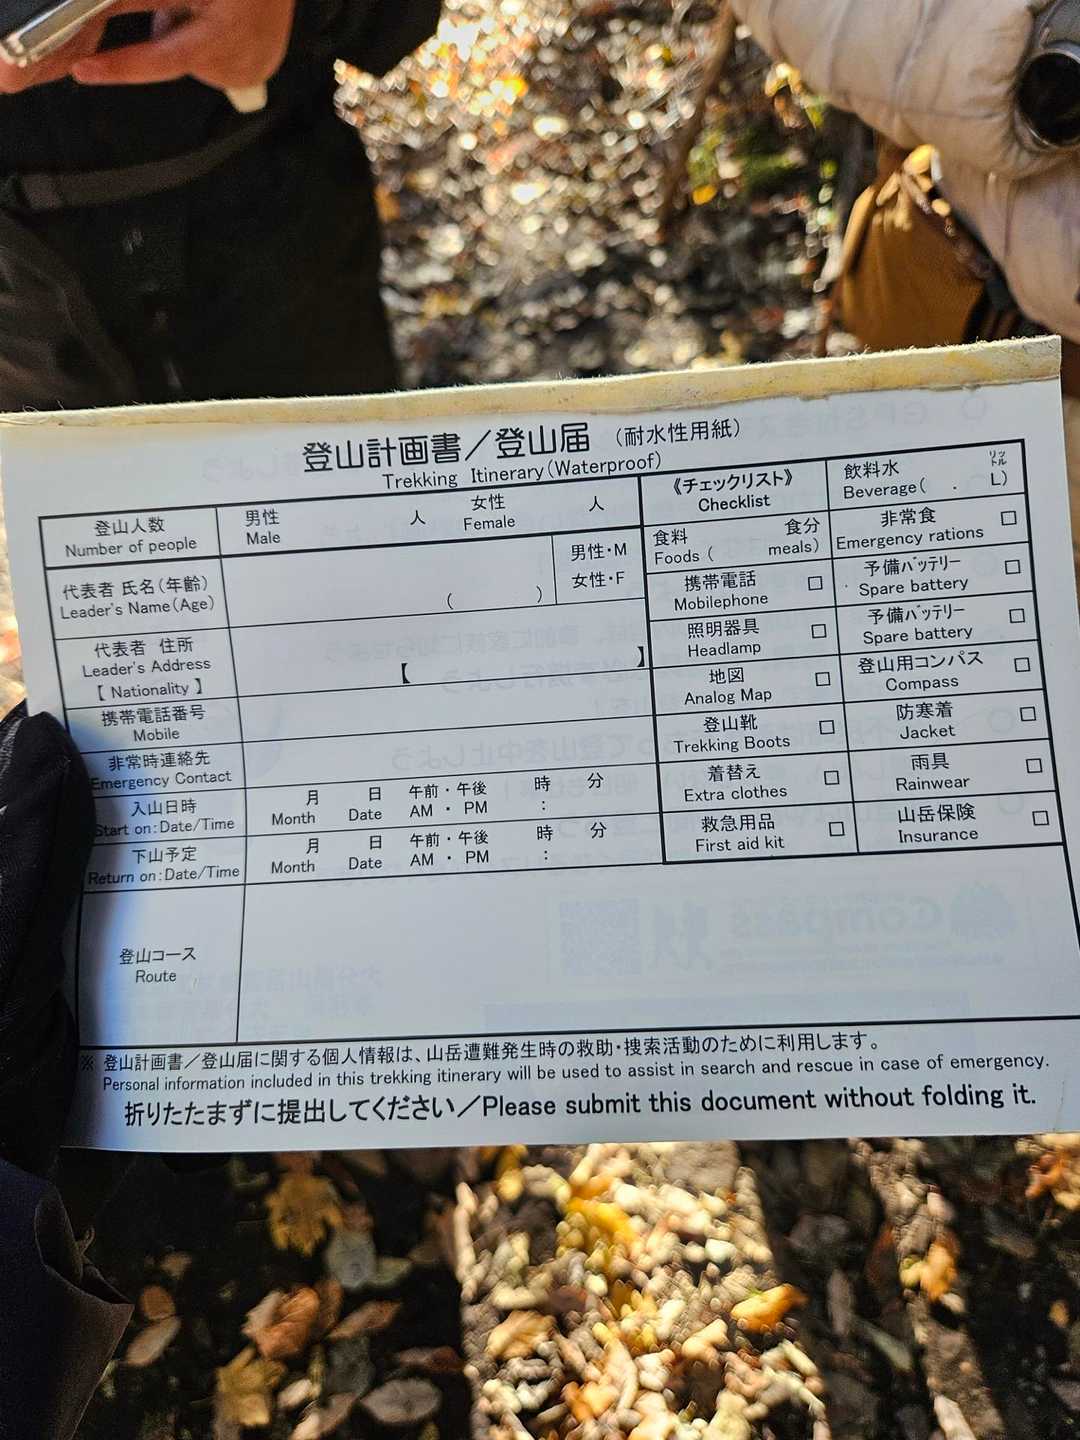 登山計画書／登山届 （耐水性用紙）
Trekking Itinerary (Waterproof)
登山人数
Number of people
男性 人 女性 人
Male Female
代表者 氏名（年齢）
Leader's Name (Age)
( )
男性・M
女性・F
代表者 住所
Leader's Address
【 Nationality 】
【 】
携帯電話番号
Mobile
非常時連絡先
Emergency Contact
入山日時
Start on: Date/Time
月 日 午前・午後 時 分
Month Date AM ・ PM :
下山予定
Return on: Date/Time
月 日 午前・午後 時 分
Month Date AM ・ PM :
登山コース
Route
《チェックリスト》
Checklist
飲料水 リットル
Beverage( . L)
食料 食分
Foods ( meals)
非常食 □
Emergency rations
携帯電話 □
Mobilephone
予備バッテリー □
Spare battery
照明器具 □
Headlamp
予備バッテリー □
Spare battery
地図 □
Analog Map
登山用コンパス □
Compass
登山靴 □
Trekking Boots
防寒着 □
Jacket
着替え □
Extra clothes
雨具 □
Rainwear
救急用品 □
First aid kit
山岳保険 □
Insurance
※ 登山計画書／登山届に関する個人情報は、山岳遭難発生時の救助・捜索活動のために利用します。
Personal information included in this trekking itinerary will be used to assist in search and rescue in case of emergency.
折りたたまずに提出してください／Please submit this document without folding it.